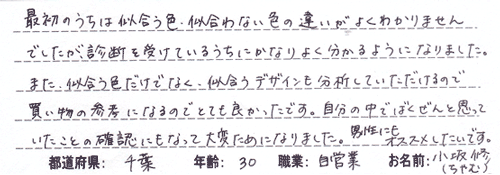 最初のうちは似合う色・似合わない色の違いがよくわかりません
でしたが、診断を受けているうちにかなりよく分かるようになりました。
また、似合う色だけでなく、似合うデザインも分析していただけるので
買い物の参考になるのでとても良かったです。自分の中でばくぜんと思って
いたことの確認にもなって大変ためになりました。男性にも
オススメしたいです。
都道府県: 千葉 年齢: 30 職業: 自営業 お名前: 小坂修
(ちゃむ)